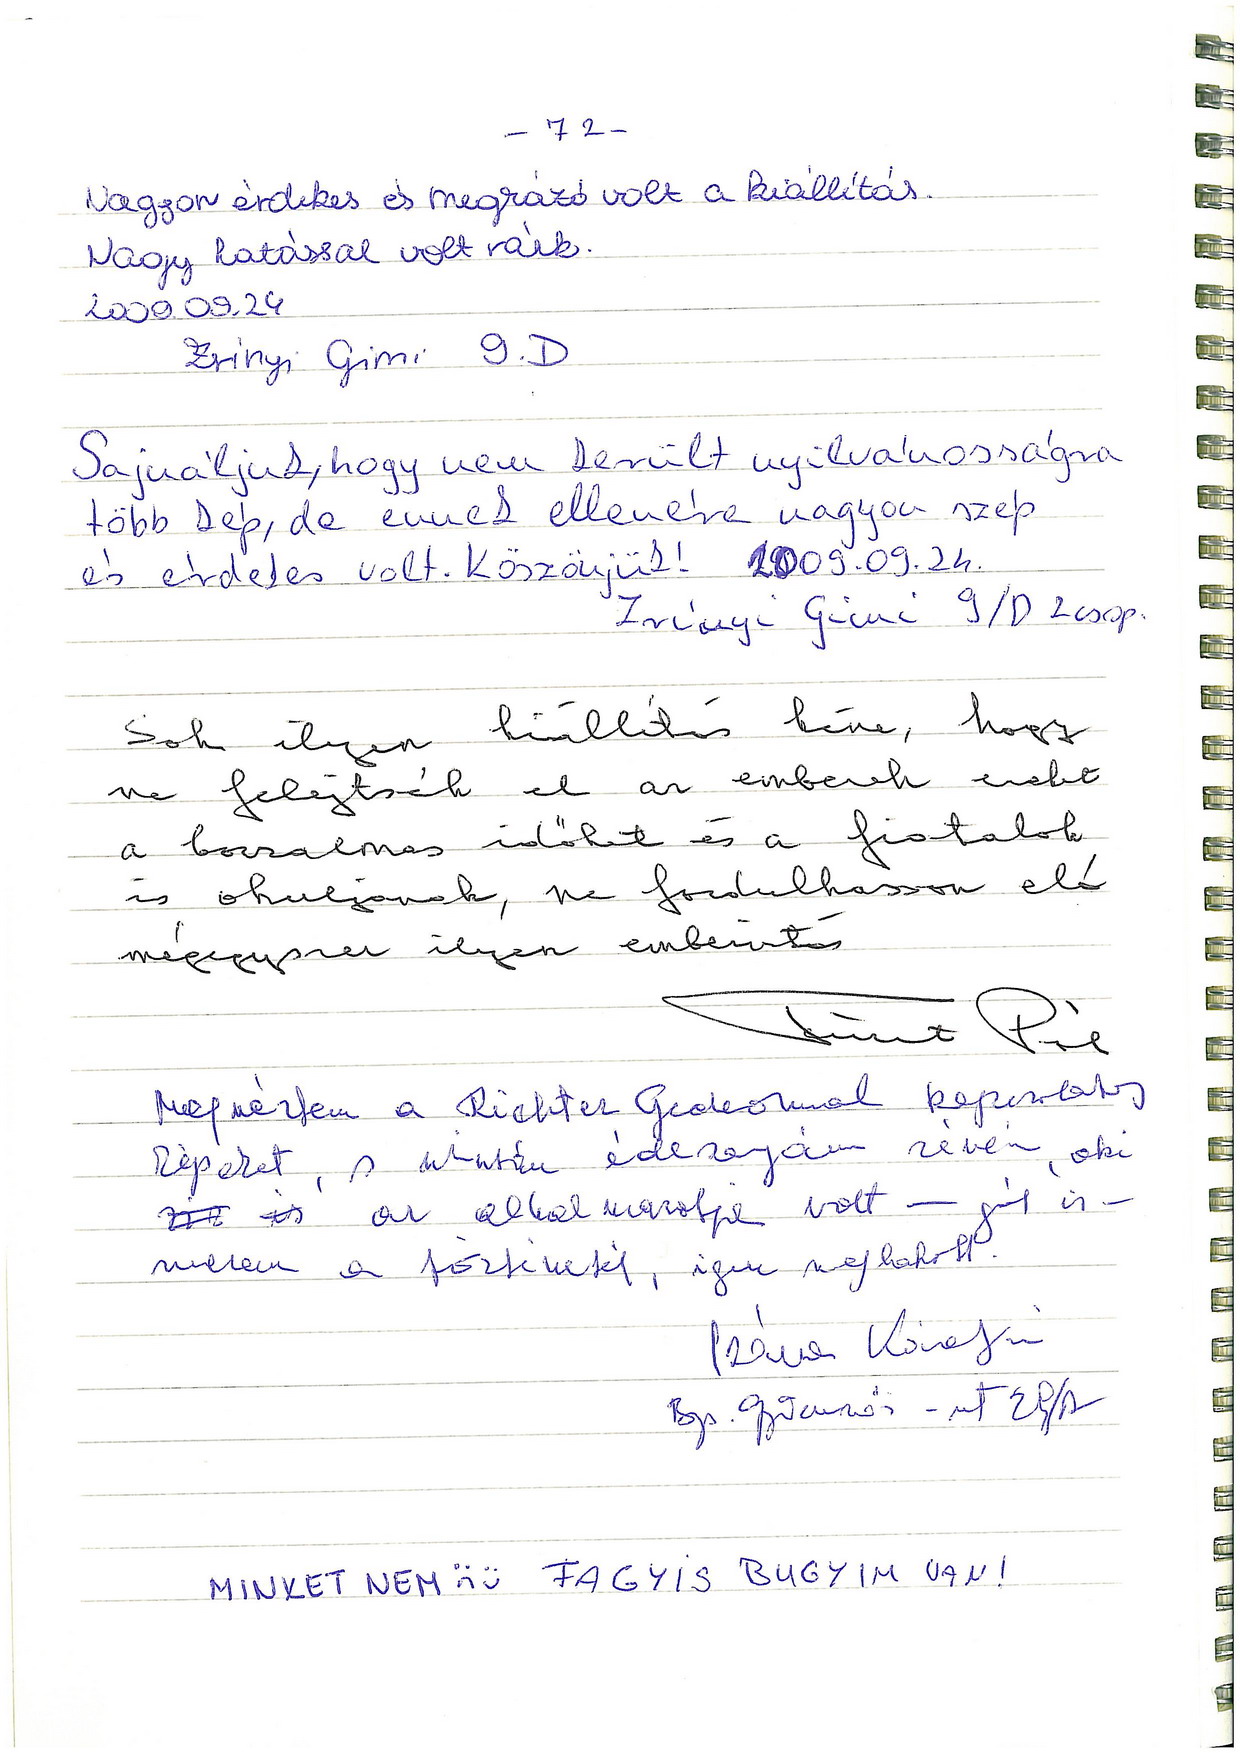 - 72 -
Nagyon érdekes és megrázó volt a kiállítás.
Nagy hatással volt ránk.
2009.09.24
Zrínyi Gimi 9.D
Sajnáljuk, hogy nem került nyilvánosságra
több kép, de ennek ellenére nagyon szép
és érdekes volt. Köszönjük! 2009.09.24.
Zrínyi Gimi 9/D 2 csop.
Sok ilyen kiállítás kéne, hogy
ne felejtsék el az emberek ezeket
a borzalmas időket és a fiatalok
is okuljanak, ne fordulhasson elő
mégegyszer ilyen embeirtás
Pál
Megnéztem a Richter Gedeonnal kapcsolatos
képeket, s miután édesanyám révén, aki
az alkalmazottja volt — jól is-
merem a történetét, igen meghatott.
Bp.
MINKET NEM FAGYIS BUGYIM VAN!